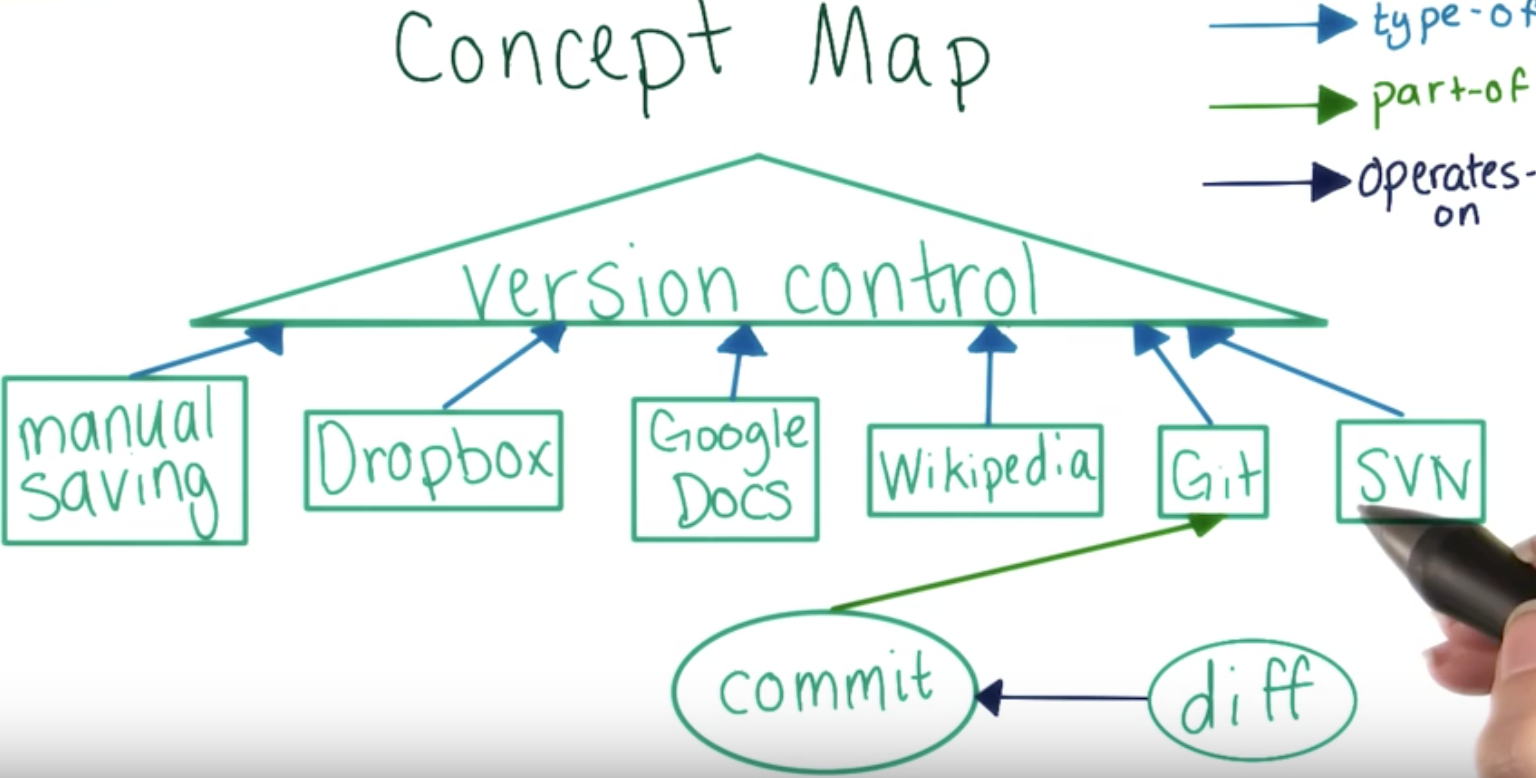 Concept Map
type-of
part-of
operates-
on
version control
manual
saving
Dropbox
Google
Docs
Wikipedia
Git
SVN
commit
diff